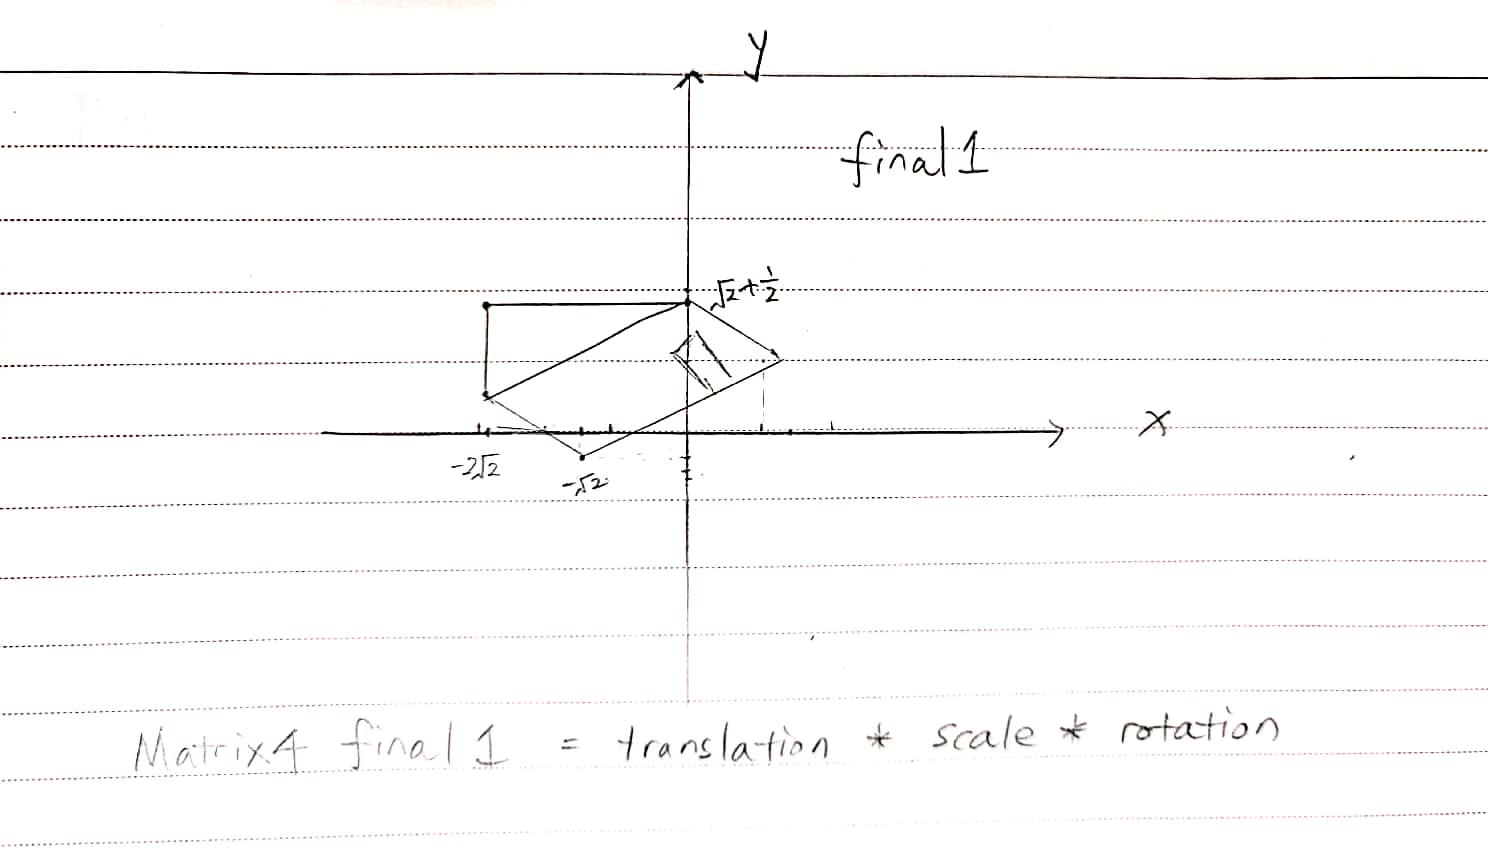 y
final 1
√2+½
x
-2√2
-√2
Matrix4 final 1 = translation * scale * rotation